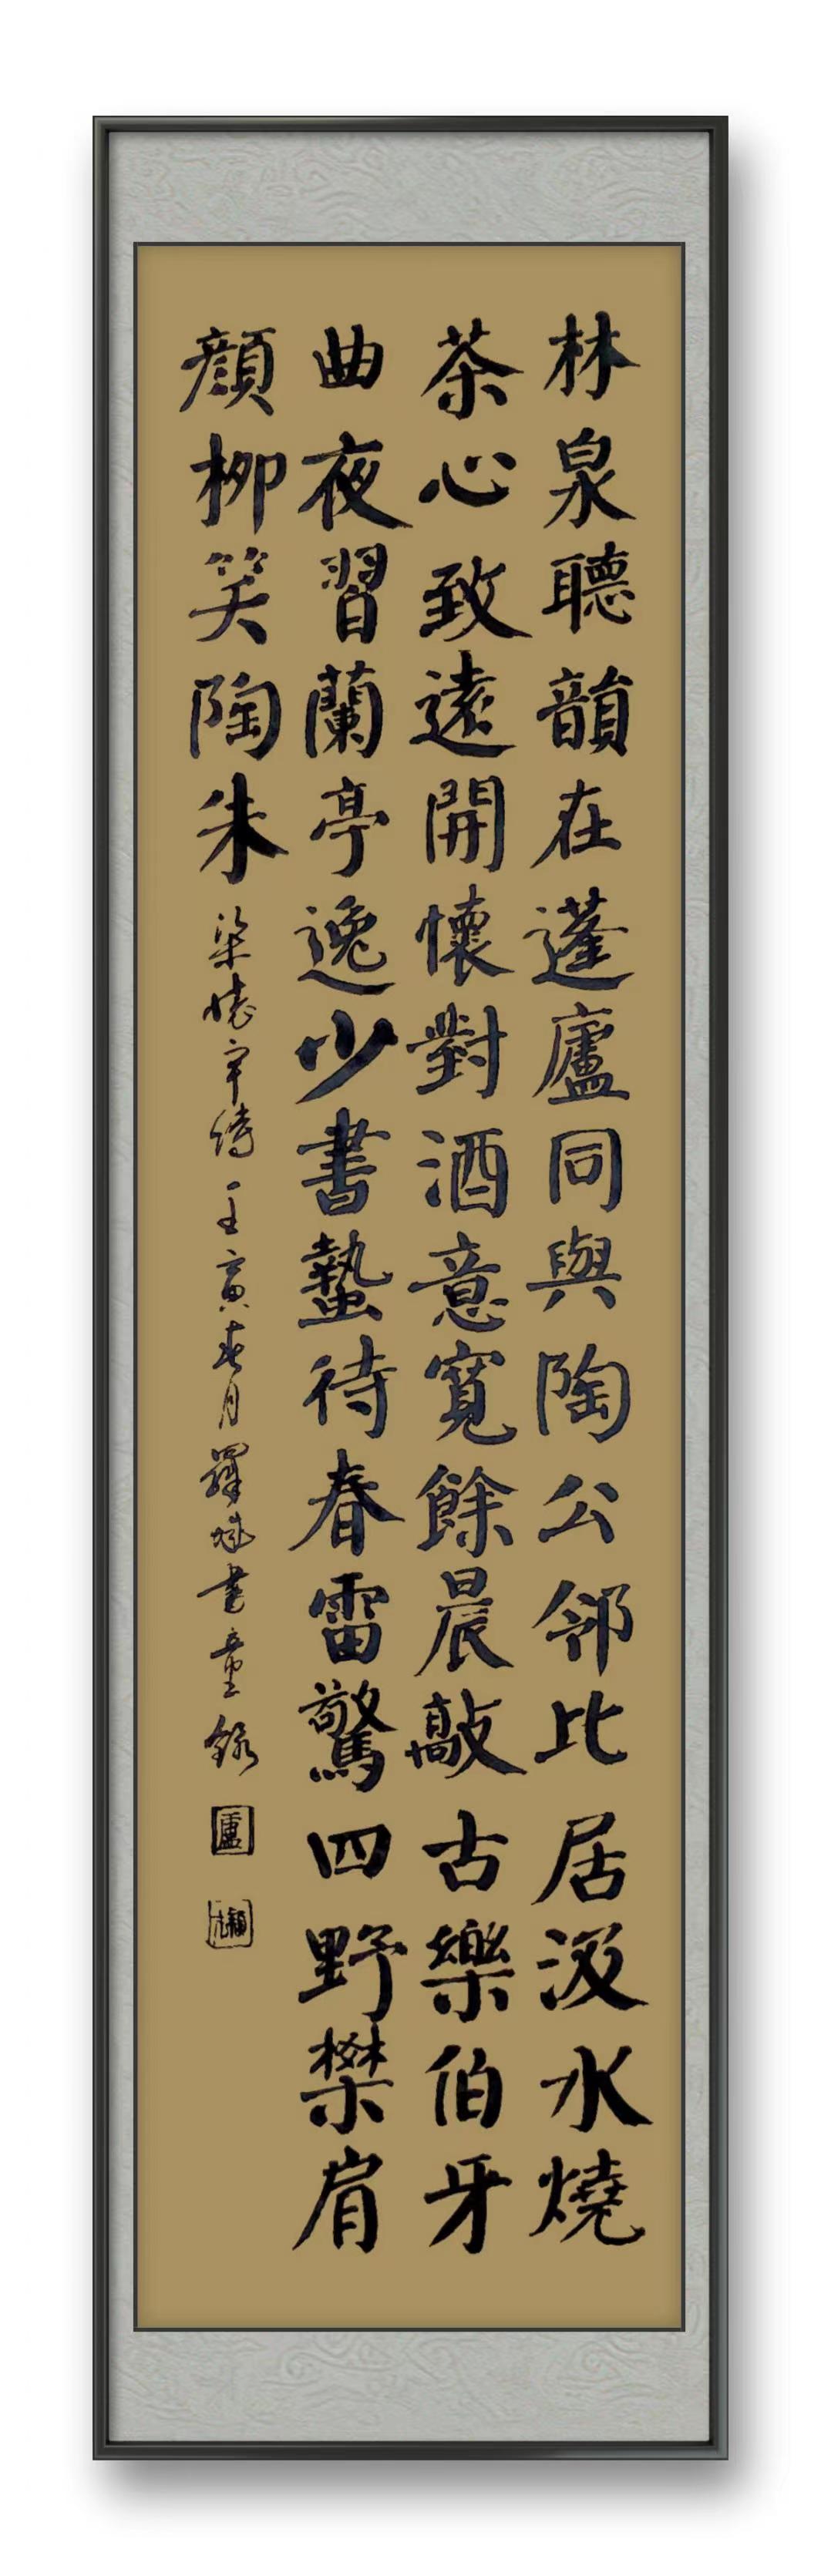 林泉聽韻在蓬廬同與陶公鄰比居汲水燒
茶心致遠開懷對酒意寬餘晨敲古樂伯牙
曲夜習蘭亭逸少書蟄待春雷驚四野樊肩
顏柳笑陶朱
梁懷宇詩壬寅春月羅城書童錄